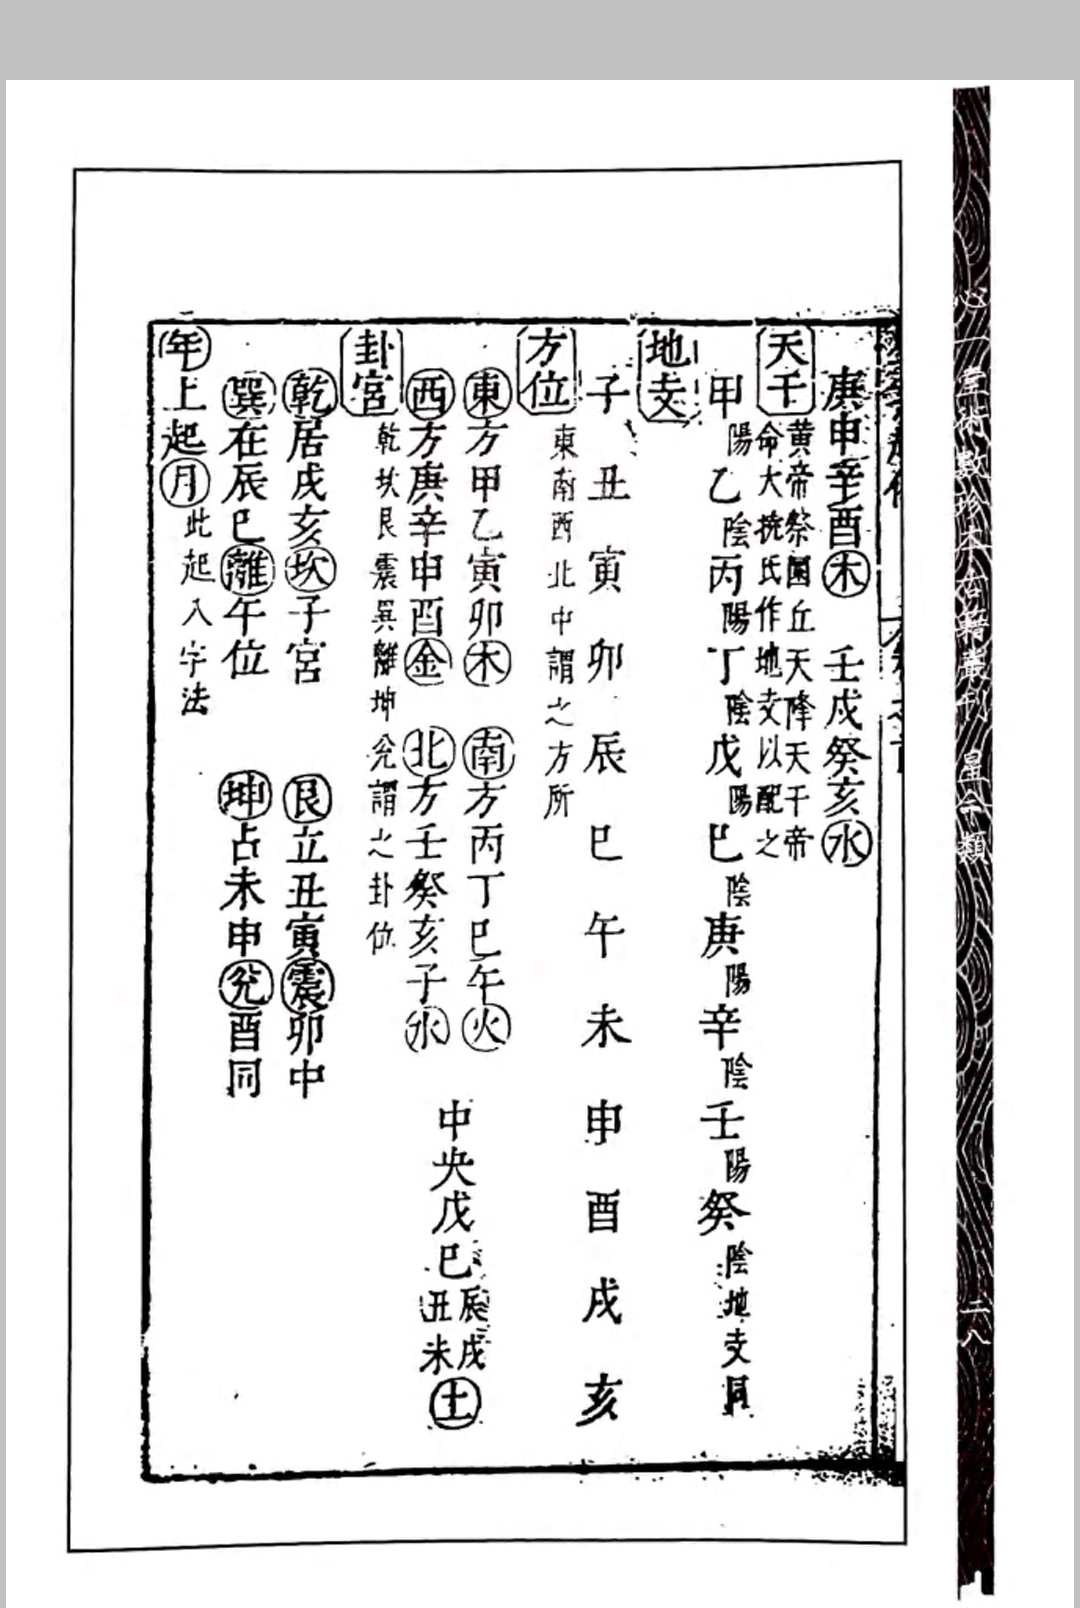 心一堂術數珍本古籍叢刊 星命類
二八
庚申辛酉木 壬戌癸亥水
天干 黃帝祭圜丘天降天干帝
命大撓氏作地支以配之
甲陽乙陰丙陽丁陰戊陽巳陰庚陽辛陰壬陽癸陰地支同
地支
子丑寅卯辰巳午未申酉戌亥
方位 東南西北中謂之方所
東方甲乙寅卯木 南方丙丁巳午火
西方庚辛申酉金 北方壬癸亥子水
中央戊巳辰戌丑未土
卦宮 乾坎艮震巽離坤兊謂之卦位
乾居戌亥坎子宮 艮立丑寅震卯中
巽在辰巳離午位 坤占未申兊酉同
年上起月 此起入字法